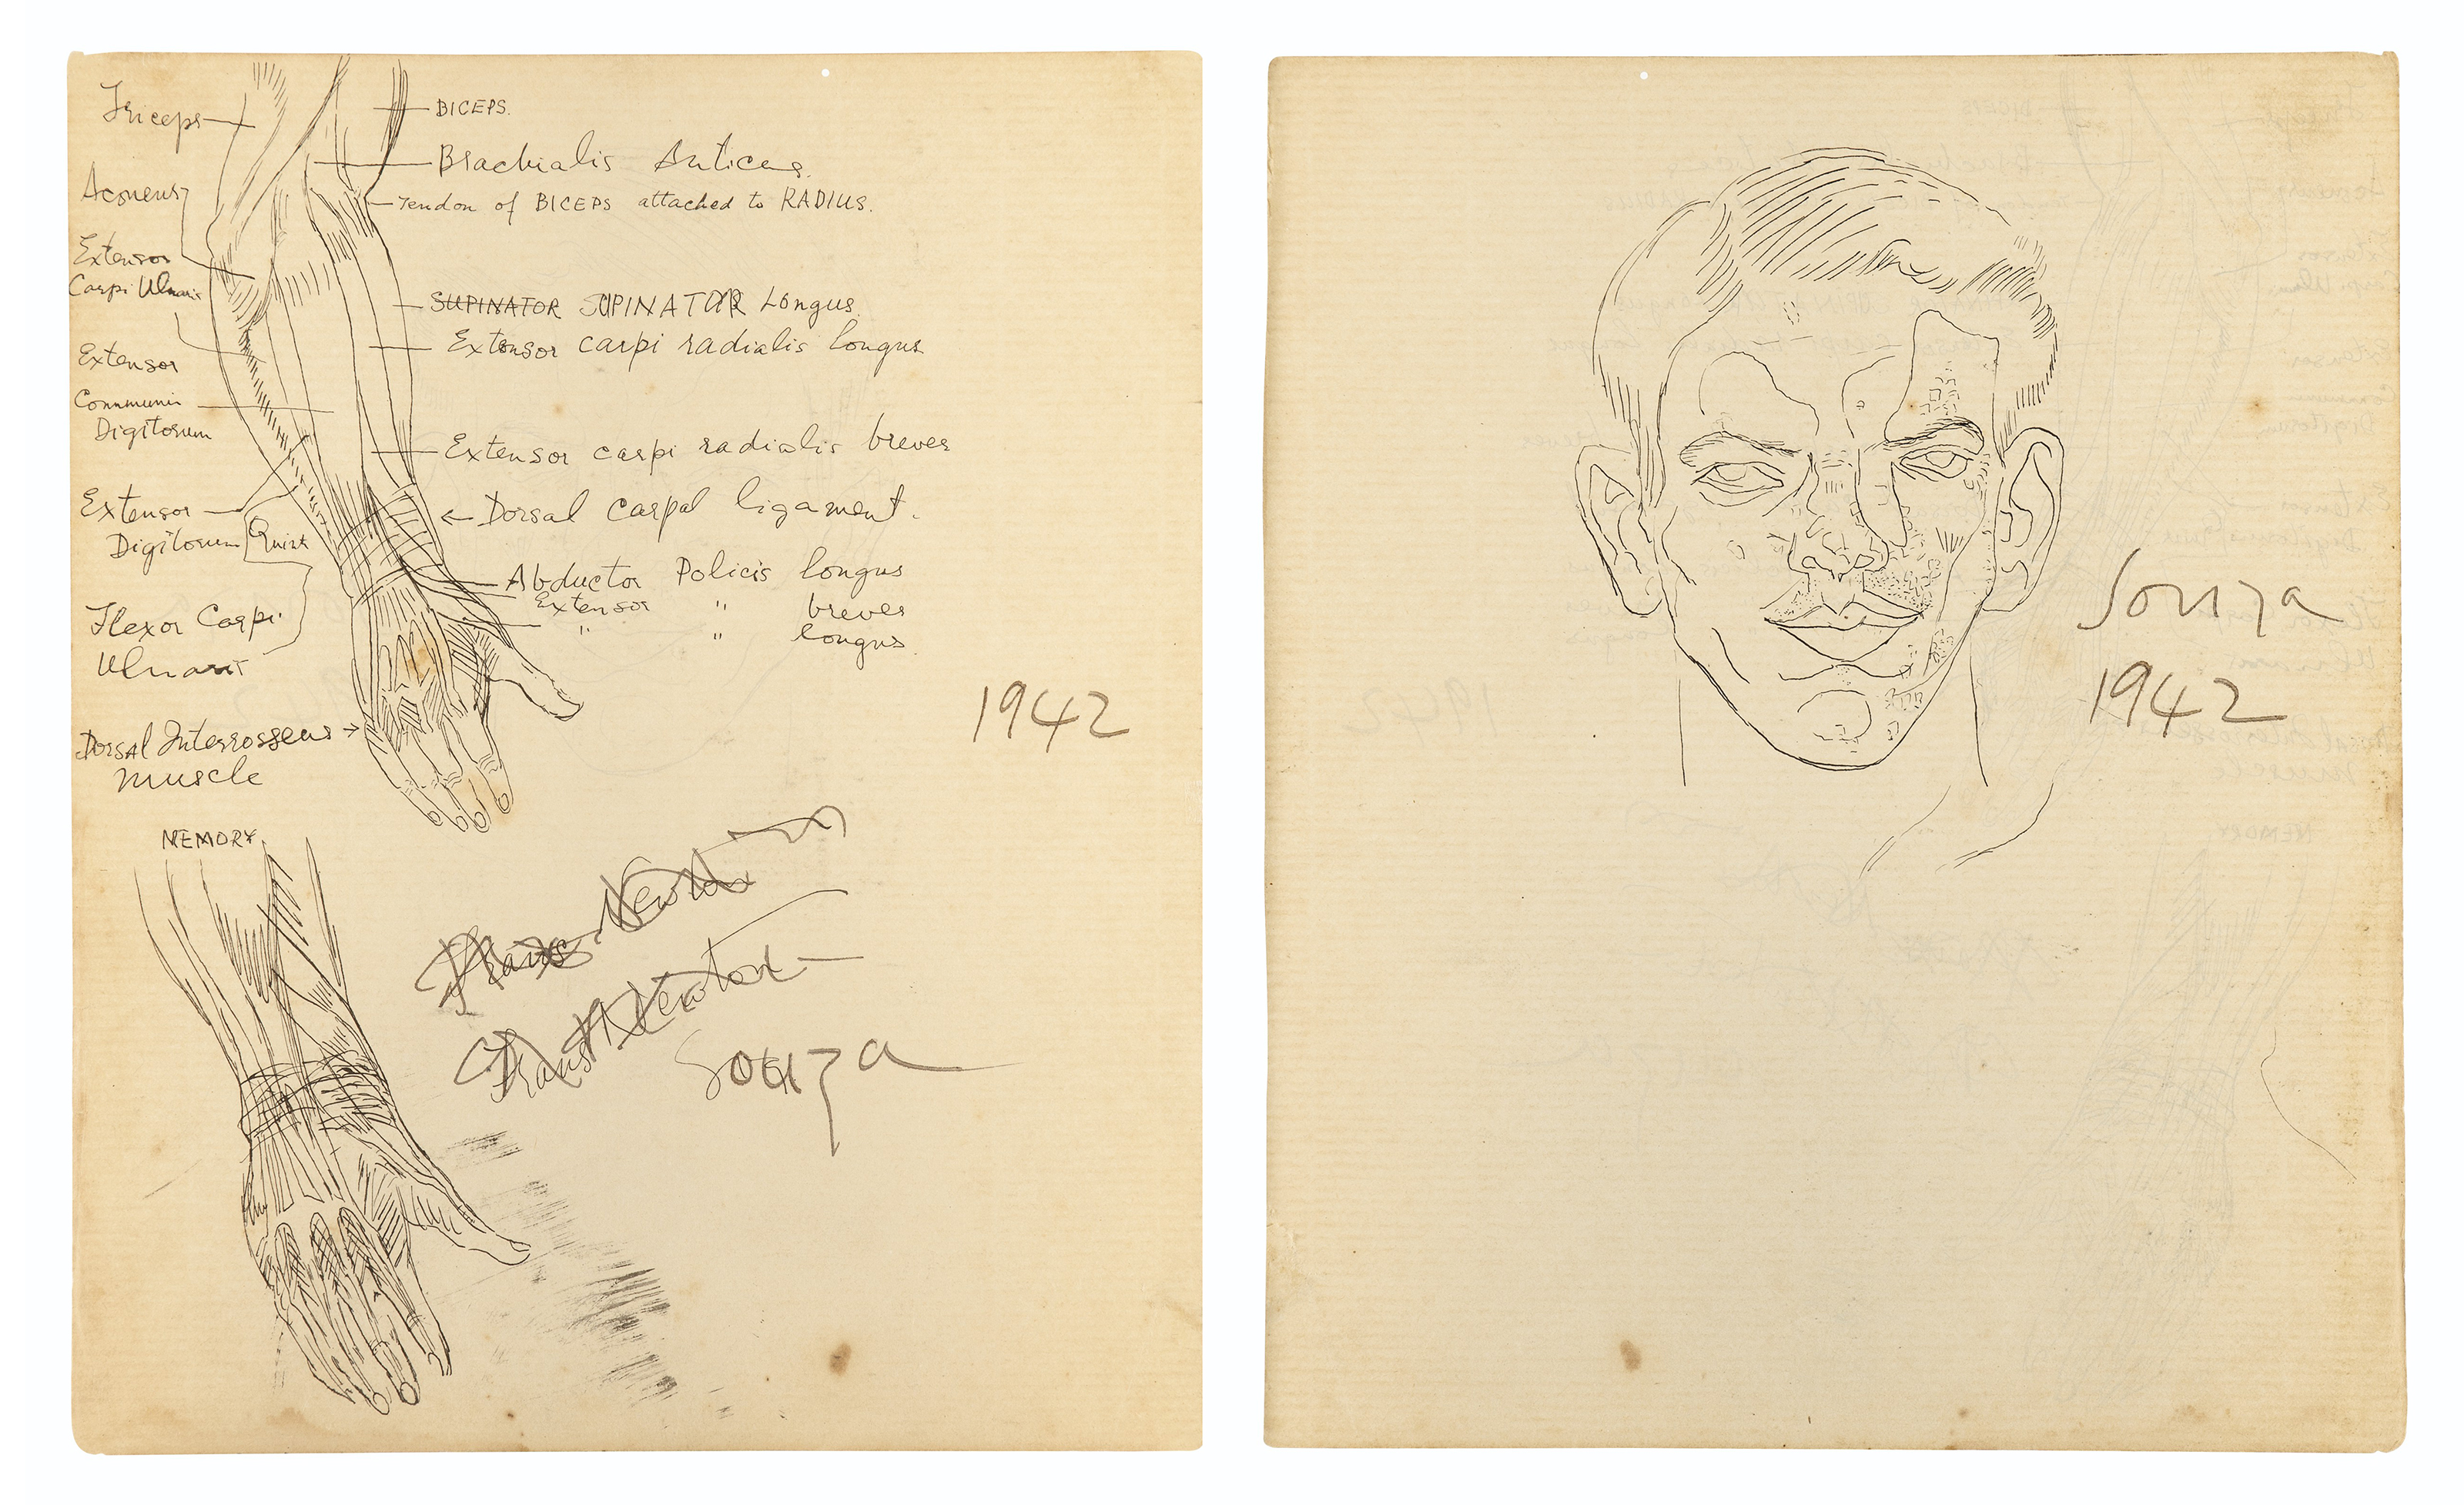 Triceps
BICEPS.
Brachialis Anticus.
Aconeus
Tendon of BICEPS attached to RADIUS.
Extensor
Carpi Ulnaris
SUPINATOR SUPINATOR Longus.
Extensor carpi radialis longus
Extensor
Communis
Digitorum
Extensor carpi radialis breves
Extensor
Digitorum Quint
← Dorsal carpal ligament.
Abductor Policis longus
Extensor " breves
" " longus.
Flexor Carpi
Ulnaris
Dorsal Interrosseus →
muscle
1942
MEMORY.
Frans Newton
Frans Newton
Souza
Souza
1942